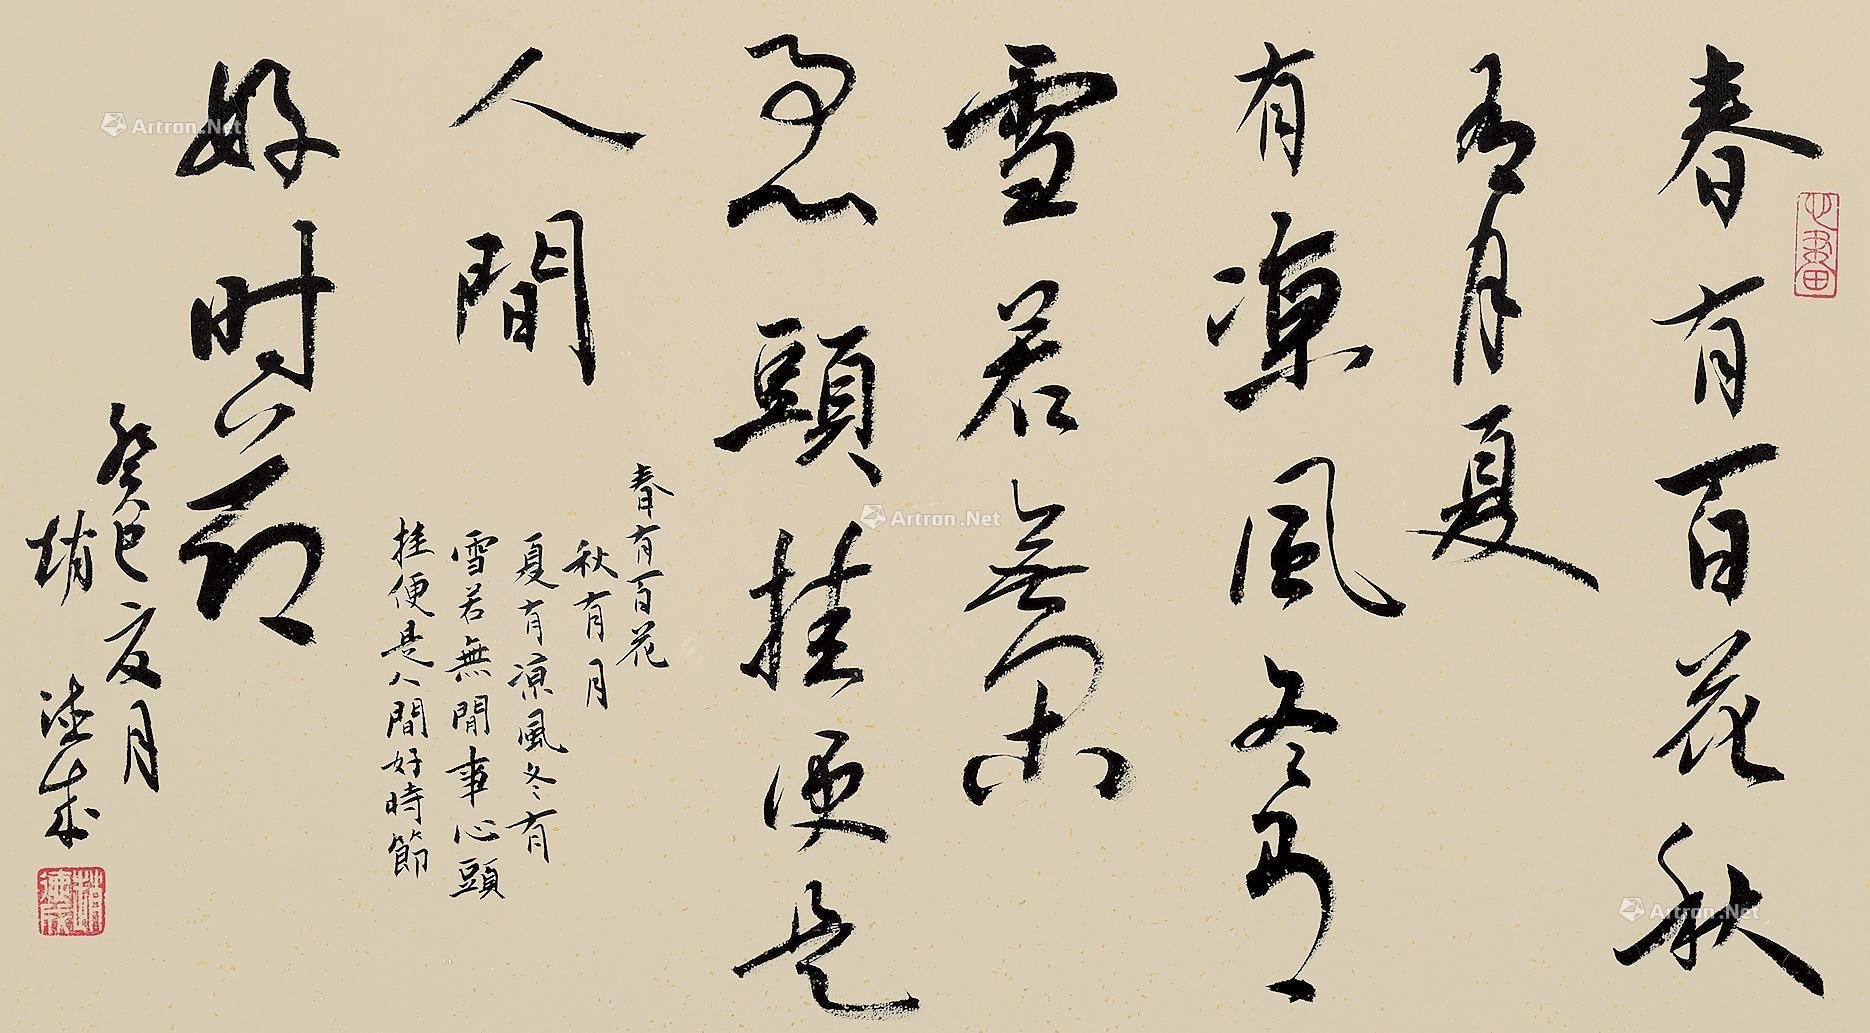 春有百花秋
有月夏
有凉風冬有
雪若無閑
事心頭挂便是
人間
好时節
春有百花
秋有月
夏有凉風冬有
雪若無閒事心頭
挂便是人間好時節
癸巳夏月
趙德成
心畫
趙德成
Artron.Net
Artron.Net
Artron.Net